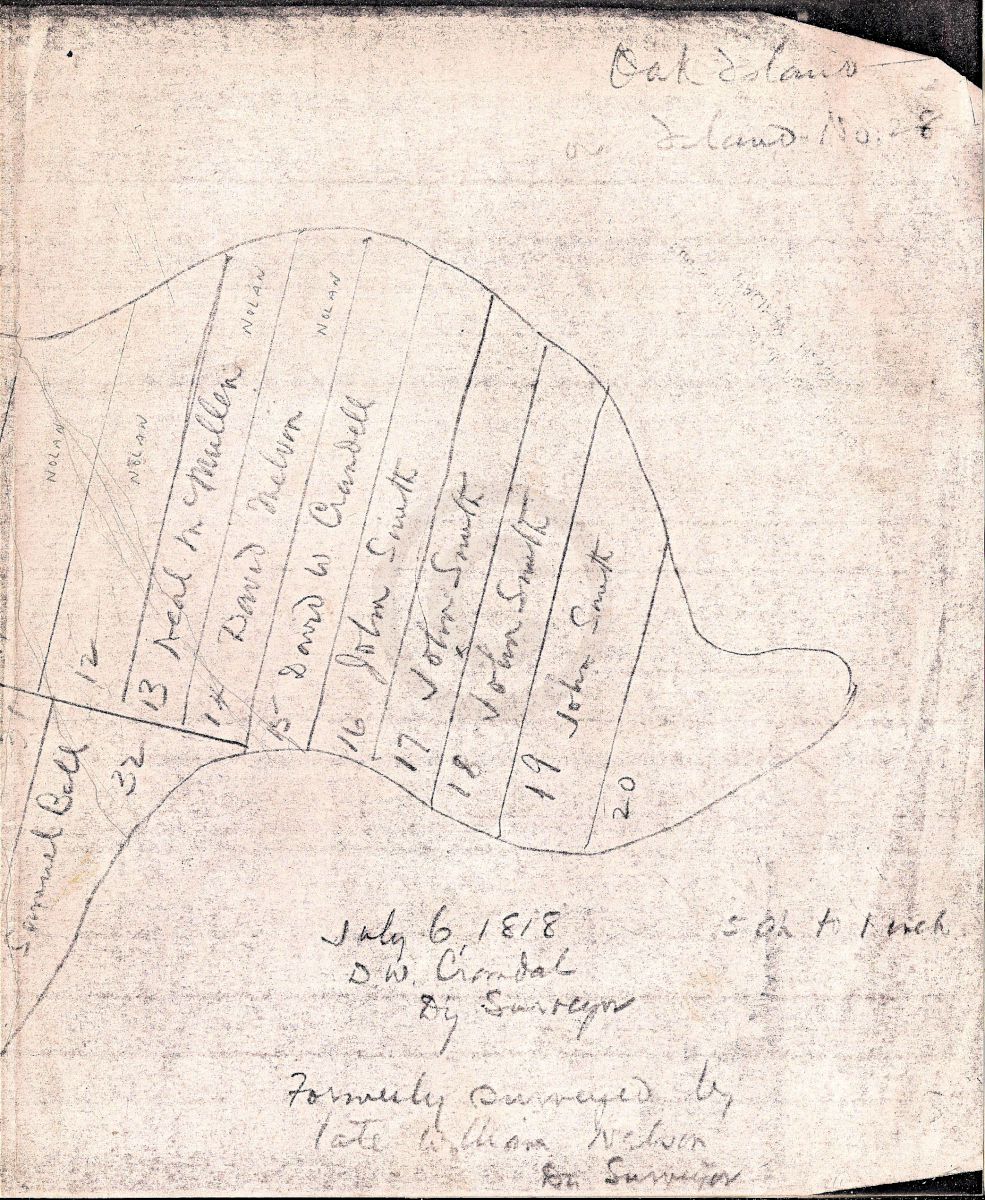 Oak Island
or Island No. 28
NOLAN
NOLAN
NOLAN
NOLAN
12
13 Neal McMullen
14 David Melvin
15 David W Crandell
16 John Smith
17 John Smith
18 John Smith
19 John Smith
20
Samuel Ball
32
July 6, 1818
D W. Crandal
Dy Surveyor
5 ch to 1 inch
Formerly surveyed by
late William Nelson
Du Surveyor